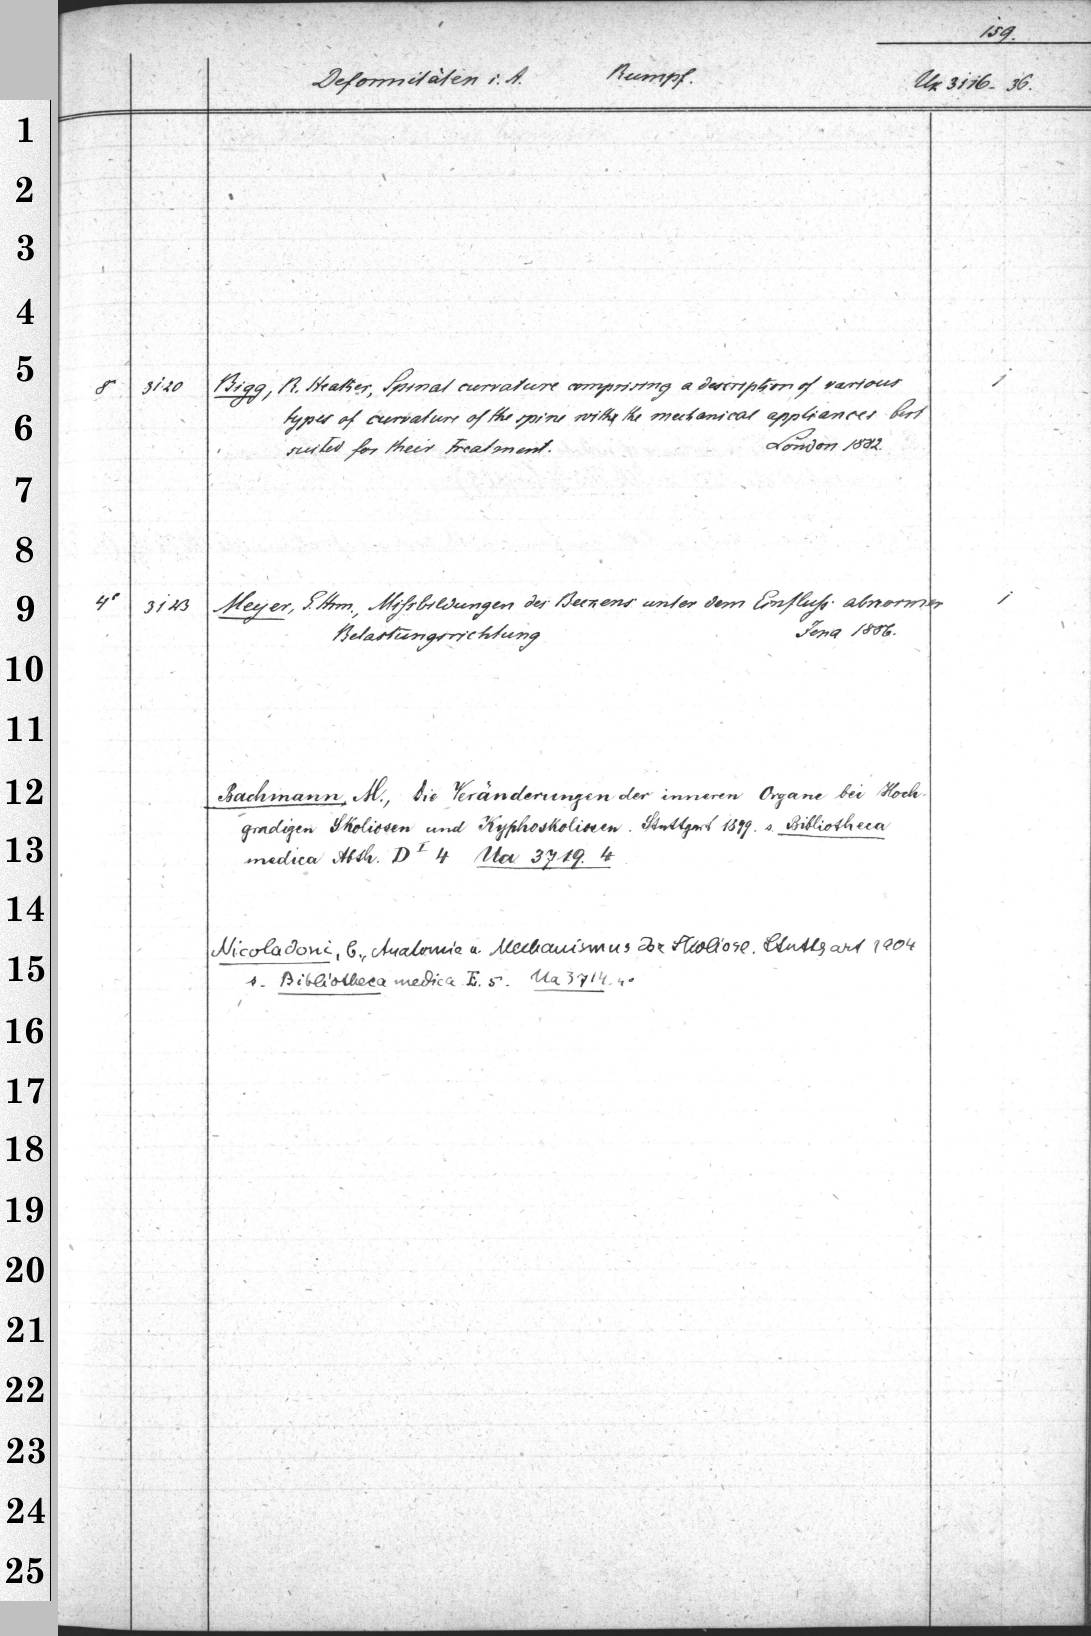 159.
Deformitäten i. A. Rumpf. Ux 3116-36.
1
2
3
4
5
8° 3120 Bigg, R. Heather, Spinal curvature comprising a description of various 1
types of curvature of the spine with the mechanical appliances best
6
suited for their treatment. London 1882.
7
8
9
4° 3123 Meyer, G. Hrm., Missbildungen des Beckens unter dem Einfluss abnormer 1
Belastungsrichtung Jena 1886.
10
11
12
Bachmann, M., Die Veränderungen der inneren Organe bei Hoch-
gradigen Skoliosen und Kyphoskoliosen. Stuttgart 1899. s. Bibliotheca
13
medica Abth. D I 4 Ua 3719. 4
14
Nicoladoni, C., Anatomie u. Mechanismus der Skoliose. Stuttgart 1904
15
s. Bibliotheca medica E. 5. Ua 3714. 4°
16
17
18
19
20
21
22
23
24
25